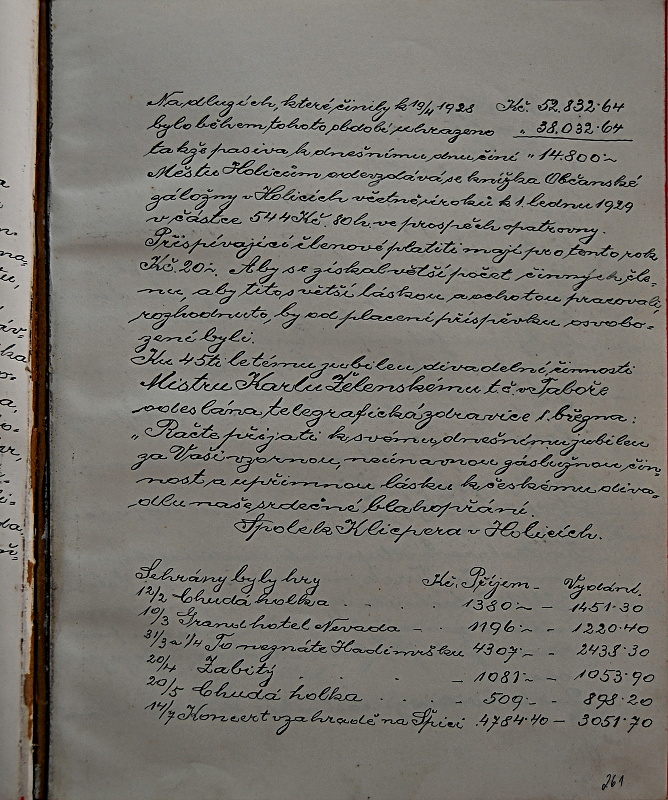 Na dluzích, které činily k 19/4 1928 Kč. 52.832·64
bylo během tohoto období uhrazeno „ 38.032.64
takže pasiva k dnešnímu dnu činí " 14.800·-
Městu Holicům odevzdává se knížka Občanské
záložny v Holicích včetně úroků k 1. lednu 1929
v částce 544 Kč. 80 h. ve prospěch opatrovny.
Přispívající členové platiti mají pro tento rok
Kč. 20·-. Aby se získal větší počet činných čle-
nu, aby tito s větší láskou a ochotou pracovali,
rozhodnuto, by od placení příspěvku osvobo-
zeni byli.
Ku 45ti letému jubileu divadelní činnosti
Mistru Karlu Želenskému t.č. v Táboře
odeslána telegrafická zdravice 1. března:
„Račte přijati k svému dnešnímu jubileu
za Vaši vzornou, neúnavnou záslužnou čin-
nost a upřímnou lásku k českému diva-
dlu naše srdečné blahopřání.
Spolek Klicpera v Holicích.
Sehrány byly hry Kč. Příjem - Vydání.
12/2 Chudá holka . . . 1380·- - 1451·30
10/3 Grand hotel Nevada - . 1196·- - 1220·40
31/3 a 1/4 To neznáte Hadimršku 4307·- - 2438·30
20/4 Zabitý . . . - 1081·- - 1053·90
20/5 Chudá holka . . . - 509·- - 898·20
14/7 Koncert v zahradě na Špici . 4784·40 - 3051·70
261